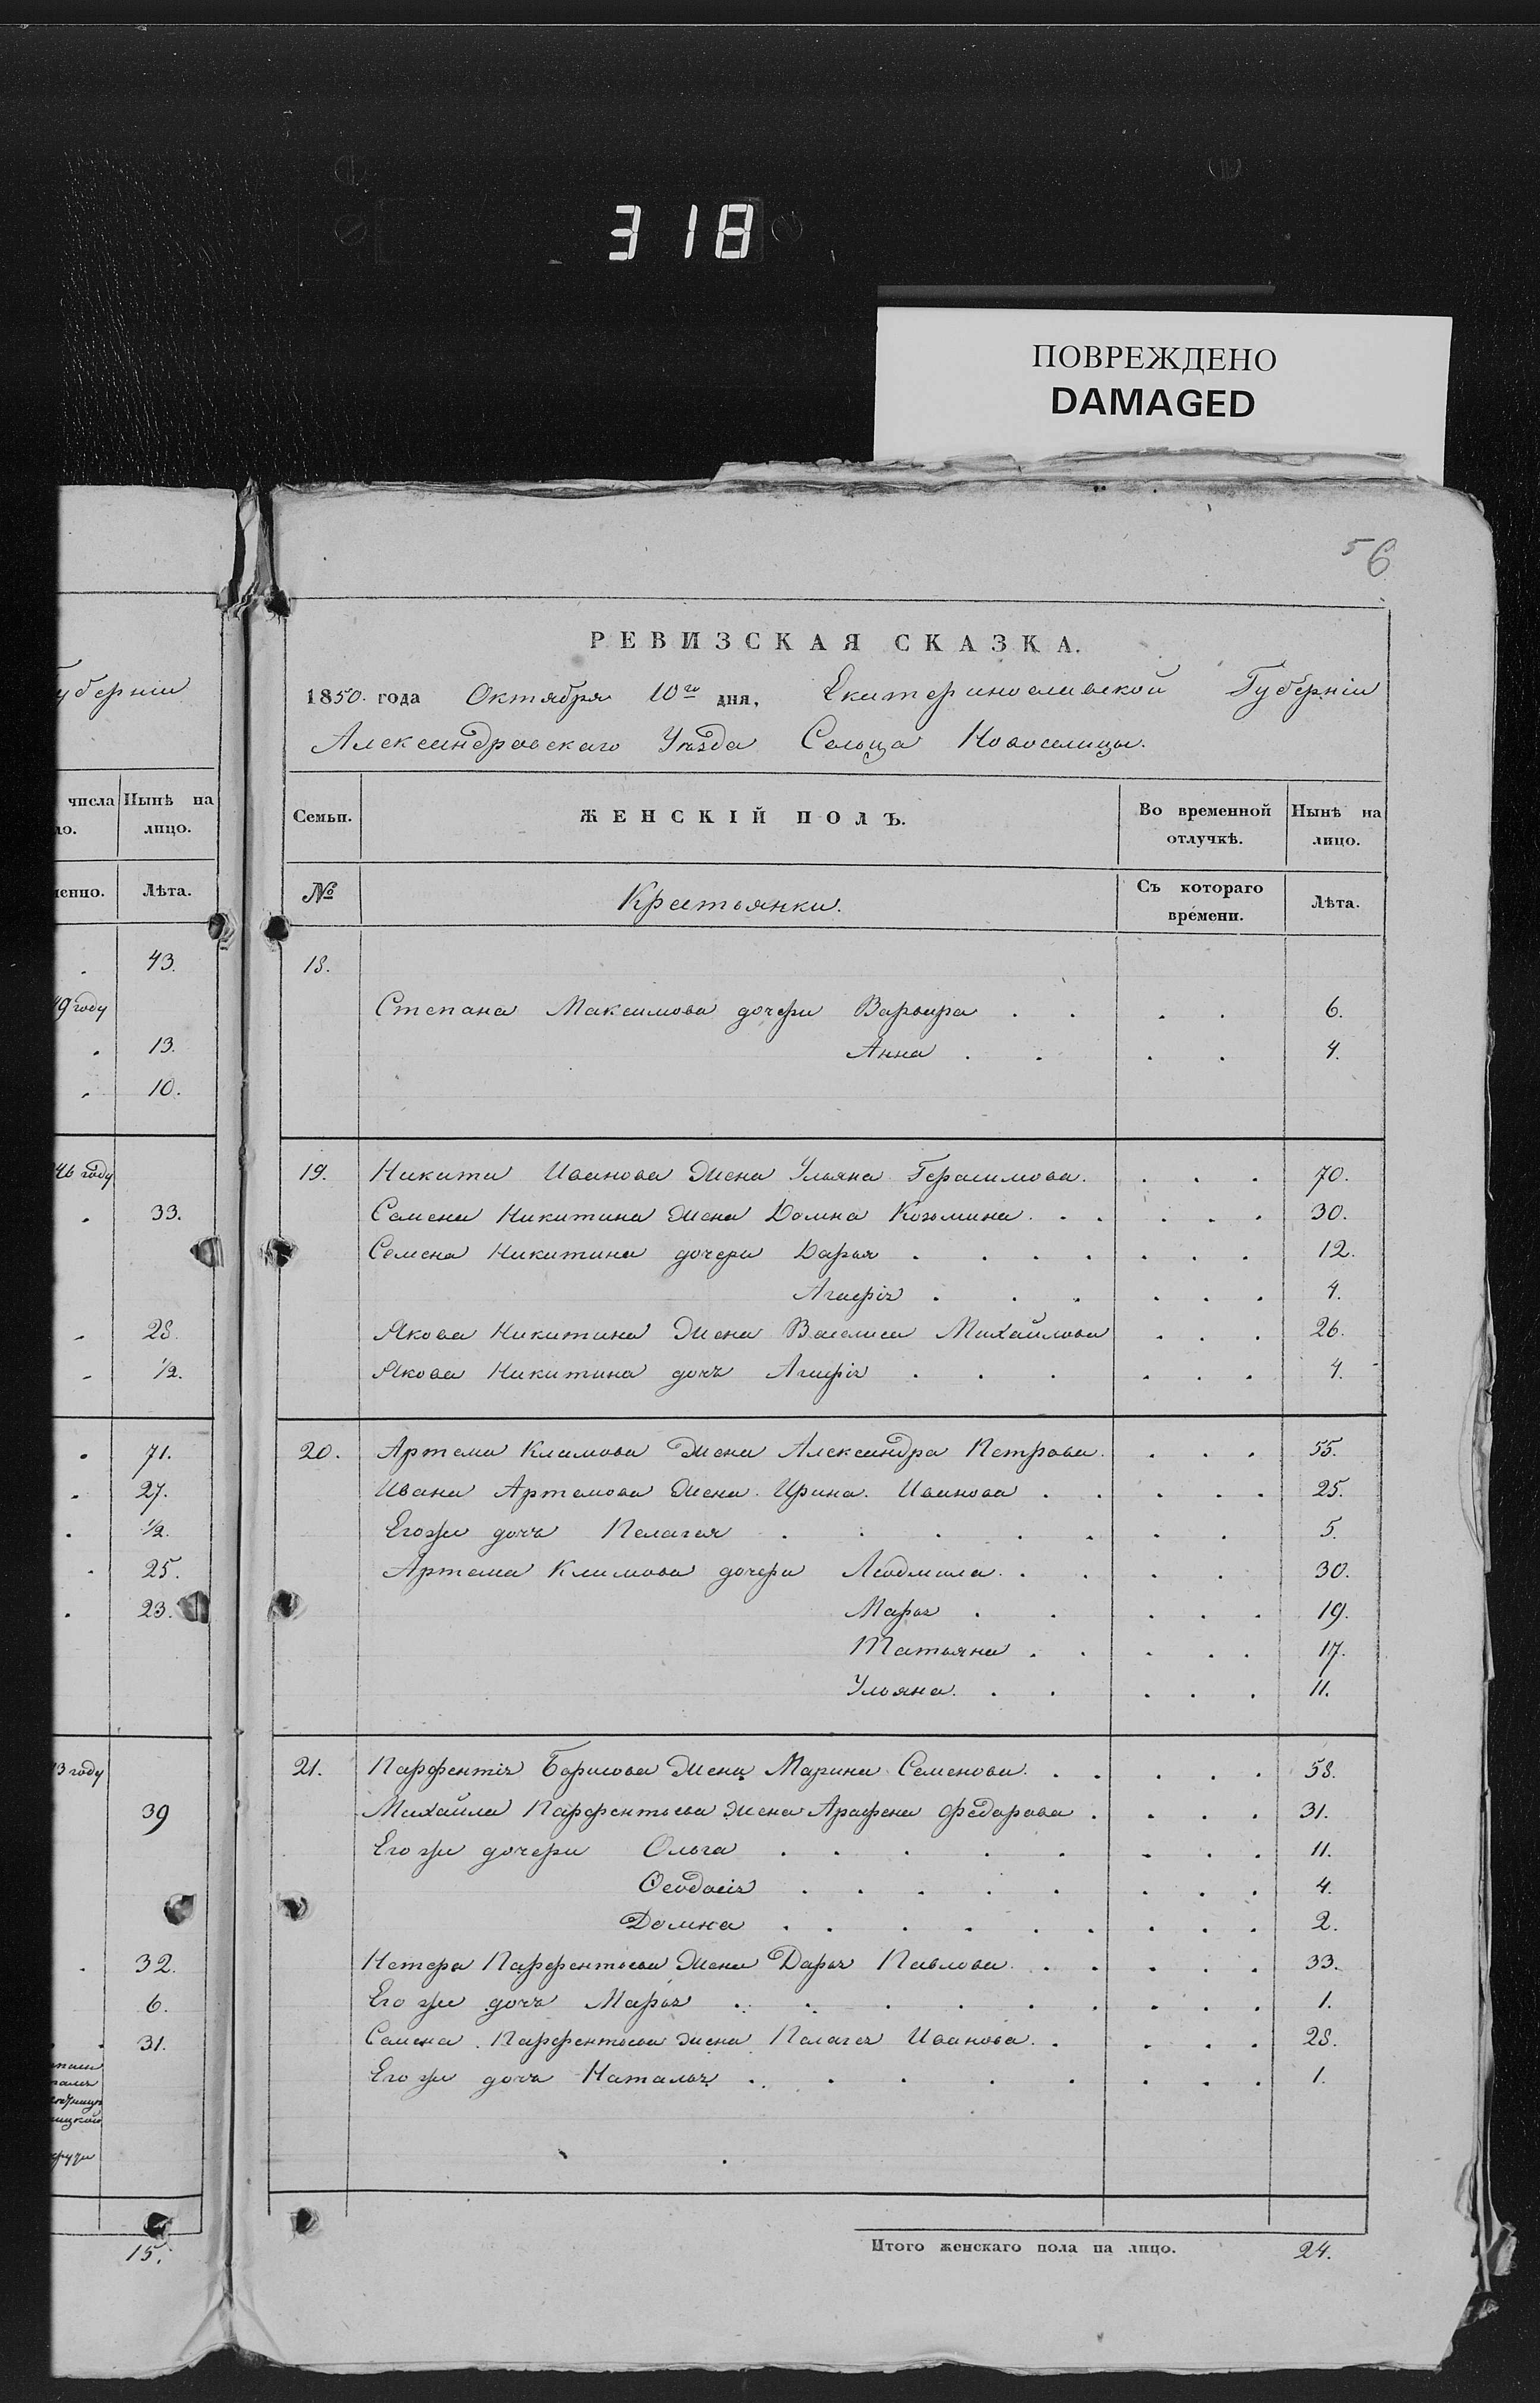 318
ПОВРЕЖДЕНО
DAMAGED
5 6
уберніи
числа Нынѣ на
ло. лицо.
менно. Лѣта.
43.
49 году
13.
10.
46 году
33.
28.
1/2.
71.
27.
1/2.
25.
23.
3 году
39
32.
6.
31.
15.
РЕВИЗСКАЯ СКАЗКА.
1850. года Октября 10го дня, Екатеринославской Губерніи
Александровскаго Уѣзда Сельца Новоселицы.
Семьи. ЖЕНСКІЙ ПОЛЪ. Во временной отлучкѣ. Нынѣ на лицо.
№ Крестьянки. Съ котораго времени. Лѣта.
18.
Степана Максимова дочери Варвара . . . . 6.
Анна . . . . 4.
19. Никиты Иванова жена Ульяна Герасимова. . . . 70.
Семена Никитина жена Домна Козьмина. . . . . . 30.
Семена Никитина дочери Дарья . . . . . . . 12.
Агафія . . . . . . 4.
Якова Никитина жена Василиса Михайлова . . . 26.
Якова Никитина дочь Агафія . . . . . . 4.
20. Артема Климова жена Александра Петрова. . . . 55.
Ивана Артемова жена Ирина Иванова . . . . . 25.
Его же дочь Пелагея . . . . . . . 5.
Артема Климова дочери Людмила. . . . . 30.
Марья . . . . . 19.
Татьяна . . . . . 17.
Ульяна. . . . . . 11.
21. Парфентія Борисова жена Марина Семенова. . . . . . 58.
Михайла Парфентьева жена Арафена Федорова . . . . 31.
Его же дочери Ольга . . . . . . . . 11.
Ѳеодосія . . . . . . . . 4.
Домна . . . . . . . . . 2.
Петра Парфентьева жена Дарья Павлова. . . . . . 33.
Его же дочь Марья . . . . . . . . . 1.
Семена Парфентьева жена Пелагея Иванова. . . . . 28.
Его же дочь Наталья . . . . . . . . 1.
Итого женскаго пола на лицо. 24.